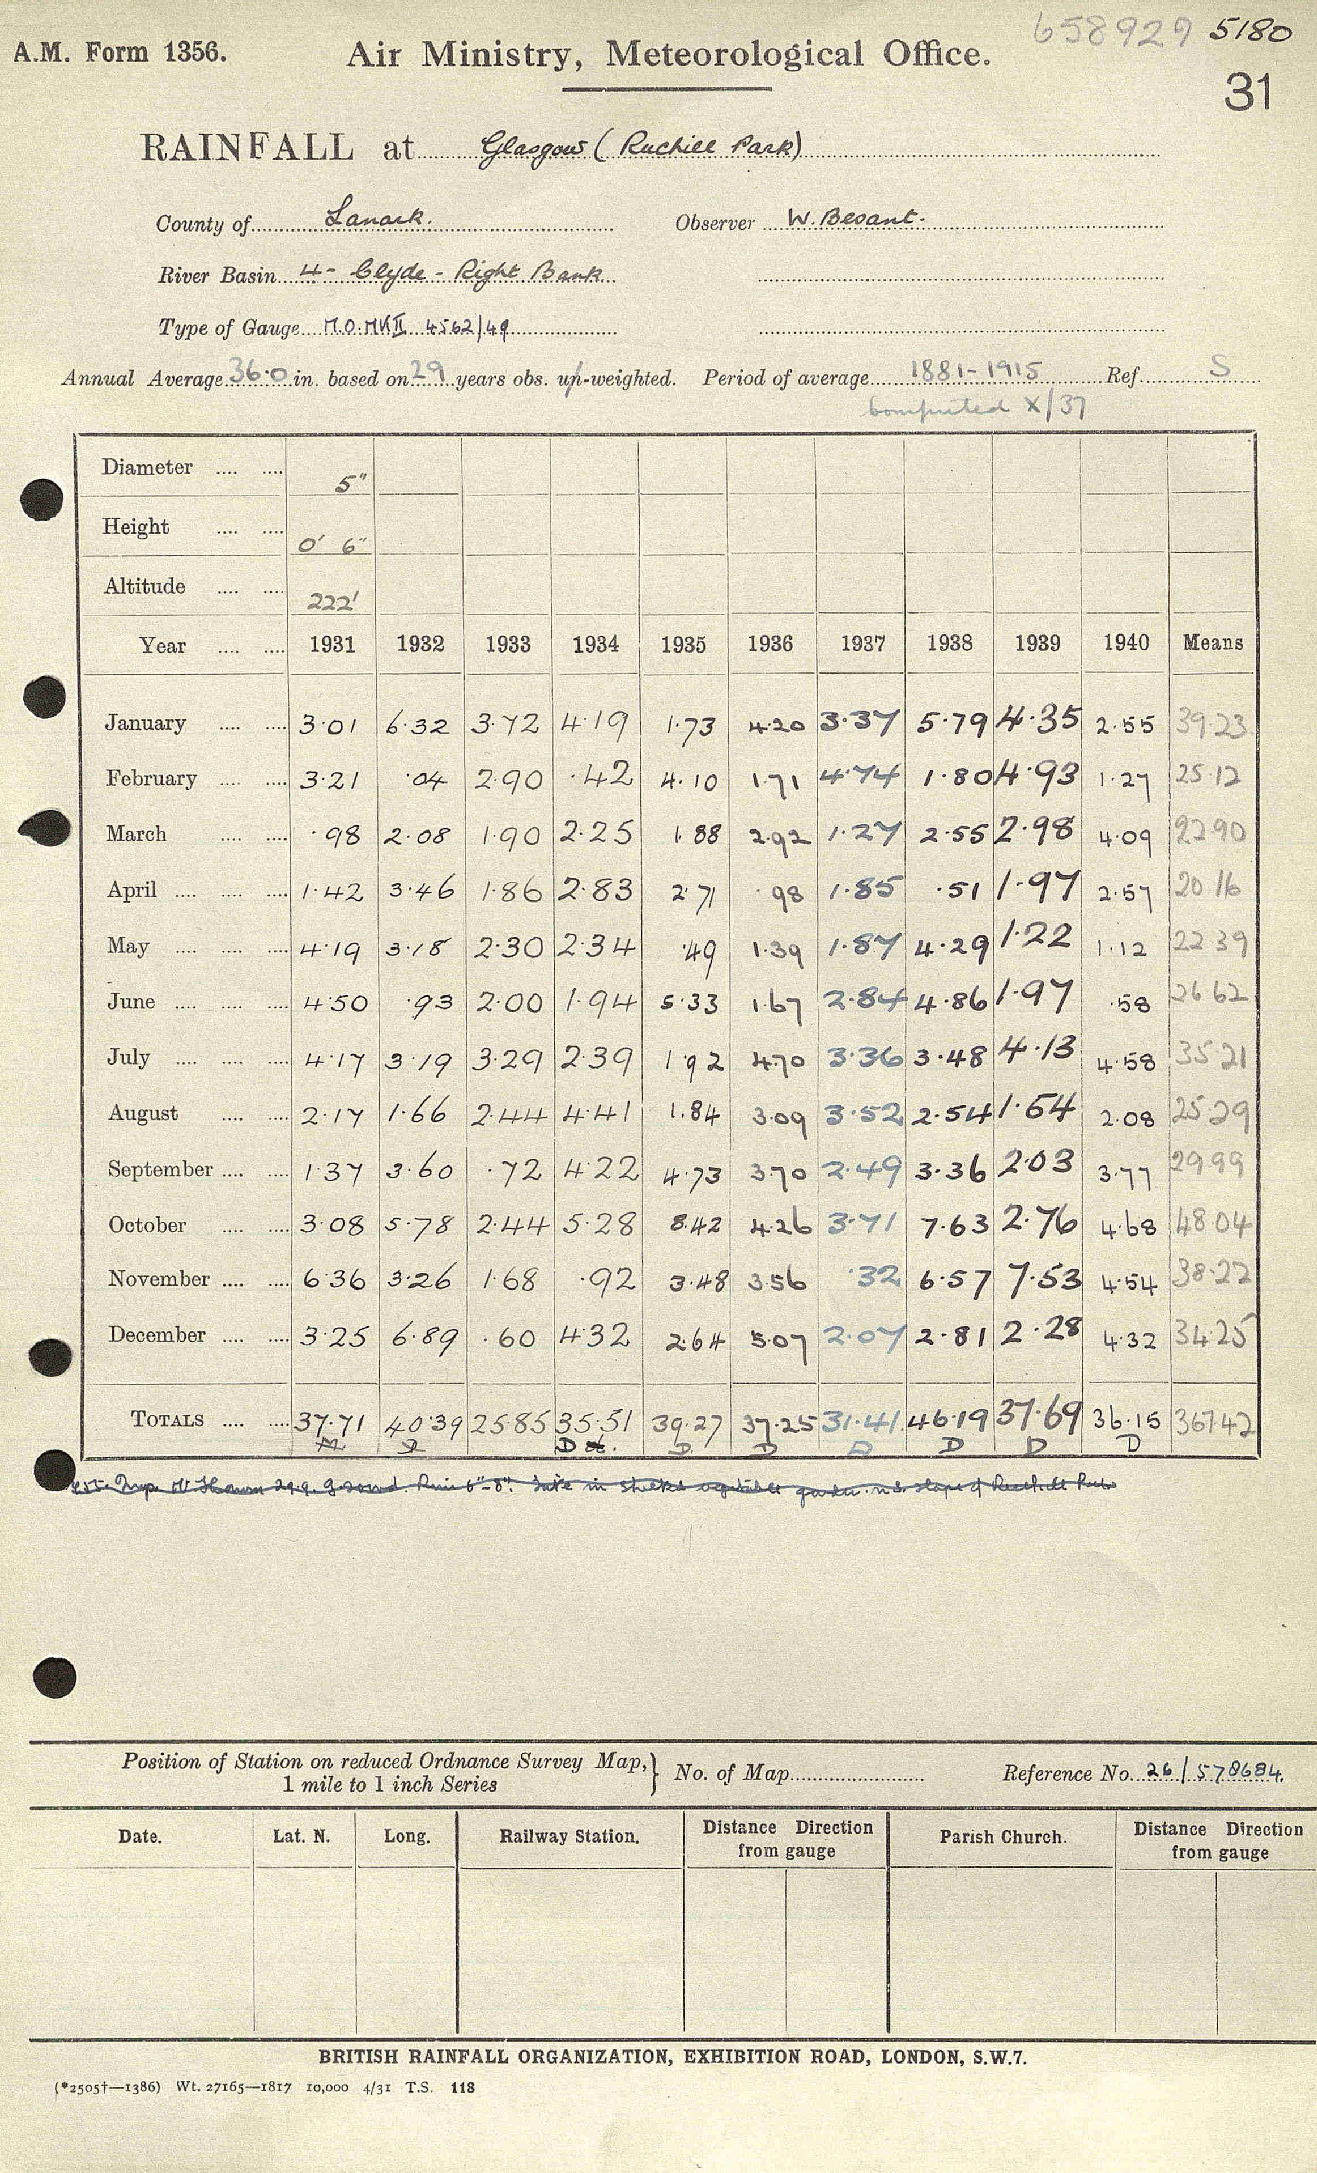 658929 5180
A.M. Form 1356. Air Ministry, Meteorological Office.
31
RAINFALL at Glasgow (Ruchill Park)
County of Lanark. Observer W. Besant.
River Basin 4 - Clyde - Right Bank
Type of Gauge M.O. MK II 4562/49
Annual Average 36.0 in. based on 29 years obs. un-weighted. Period of average 1881-1915 Ref. S
Computed X/37
Diameter .... .... 5"
Height .... .... 0' 6"
Altitude .... .... 222'
Year .... .... 1931 1932 1933 1934 1935 1936 1937 1938 1939 1940 Means
January .... .... 3.01 6.32 3.72 4.19 1.73 4.20 3.37 5.79 4.35 2.55 39.23
February .... .... 3.21 .04 2.90 .42 4.10 1.71 4.74 1.80 4.93 1.27 25.12
March .... .... .98 2.08 1.90 2.25 1.88 2.92 1.27 2.55 2.98 4.09 22 90
April .... .... .... 1.42 3.46 1.86 2.83 2.71 .98 1.85 .51 1.97 2.57 20 16
May .... .... .... 4.19 3.18 2.30 2.34 .49 1.39 1.87 4.29 1.22 1.12 22 39
June .... .... .... 4.50 .93 2.00 1.94 5.33 1.67 2.84 4.86 1.97 .58 26 62
July .... .... .... 4.17 3.19 3.29 2.39 1 92 4.70 3.36 3.48 4.13 4.58 35 21
August .... .... 2.17 1.66 2.44 4.41 1.84 3.09 3.52 2.54 1.54 2.08 25.29
September .... .... 1.37 3.60 .72 4.22 4.73 3.70 2.49 3.36 2.03 3.77 29.99
October .... .... 3.08 5.78 2.44 5.28 8.42 4.26 3.71 7.63 2.76 4.68 48 04
November .... .... 6.36 3.26 1.68 .92 3.48 3.56 .32 6.57 7.53 4.54 38.22
December .... .... 3.25 6.89 .60 4.32 2.64 5.07 2.07 2.81 2.28 4.32 34.25
TOTALS .... .... 37.71 40.39 25.85 35.51 39.27 37.25 31.41 46.19 37.69 36.15 367.42
D D D D D D D
Position of Station on reduced Ordnance Survey Map, 1 mile to 1 inch Series } No. of Map Reference No. 26/578684.
Date. Lat. N. Long. Railway Station. Distance Direction from gauge Parish Church. Distance Direction from gauge
BRITISH RAINFALL ORGANIZATION, EXHIBITION ROAD, LONDON, S.W.7.
(*2505†—1386) Wt. 27165—1817 10,000 4/31 T.S. 113